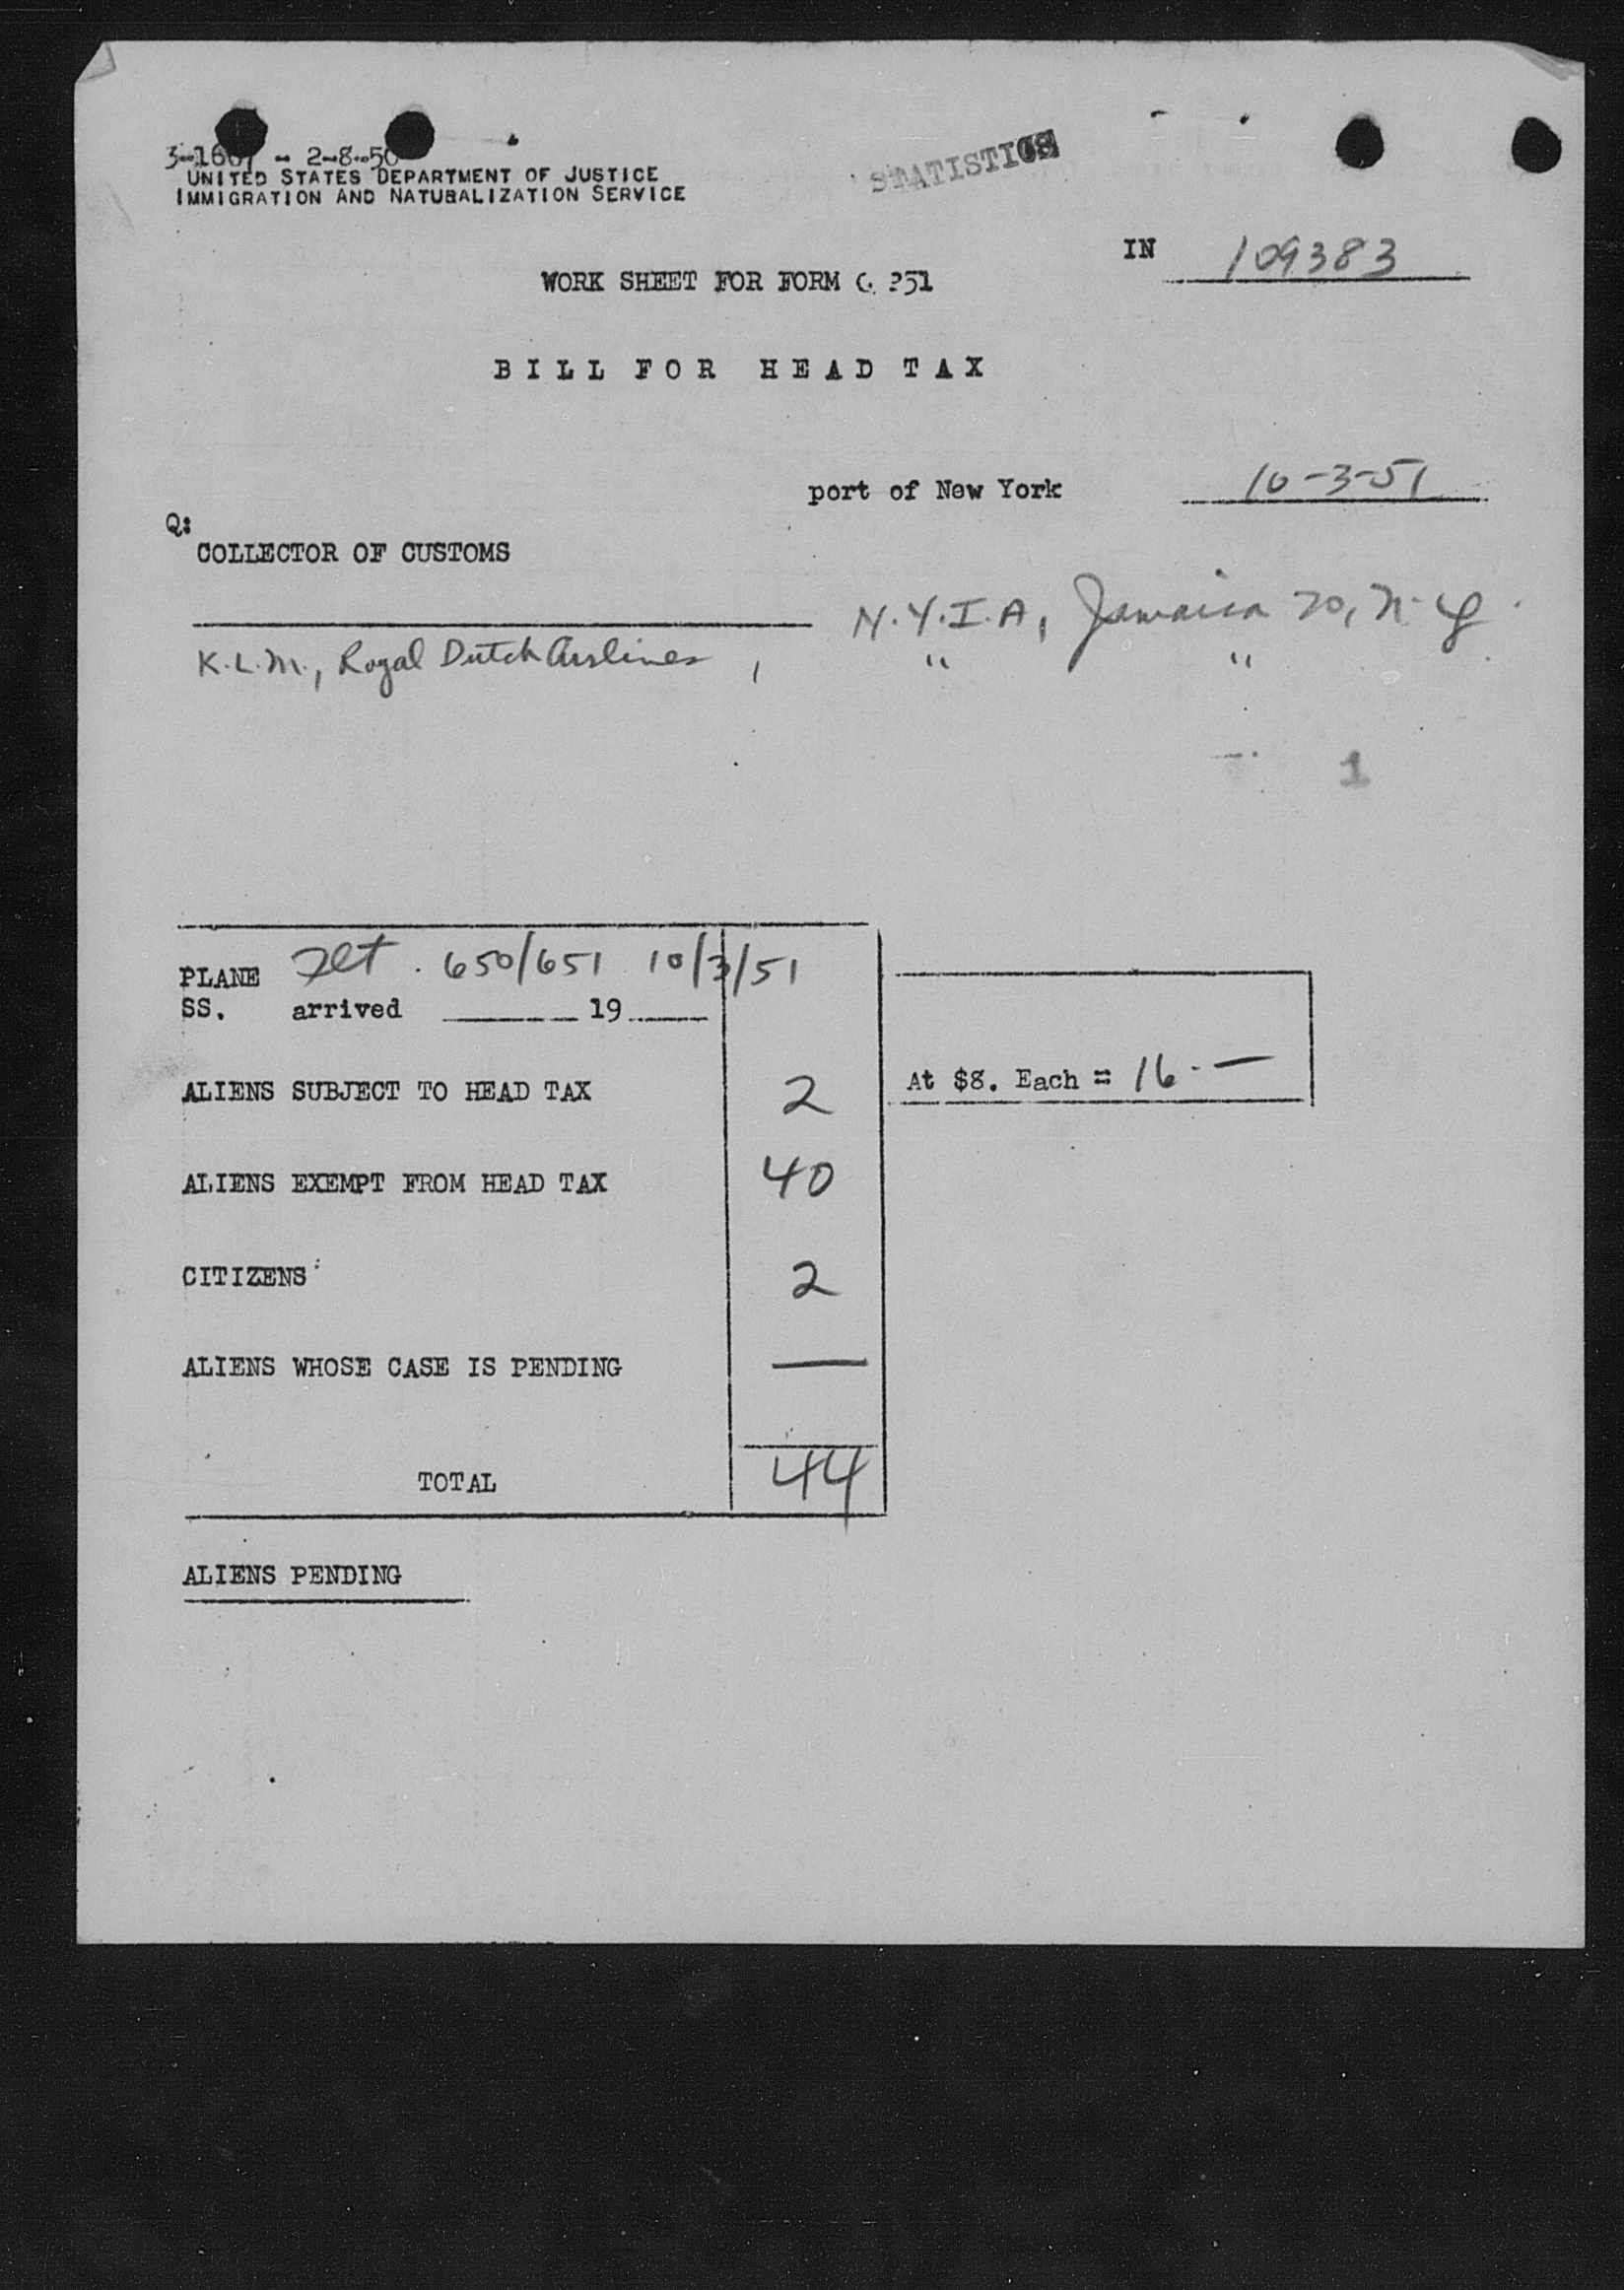 - 2-8-50
UNITED STATES DEPARTMENT OF JUSTICE
IMMIGRATION AND NATURALIZATION SERVICE
STATISTICS
IN 109383
WORK SHEET FOR FORM 251
BILL FOR HEAD TAX
port of New York 10-3-51
Q:
COLLECTOR OF CUSTOMS
N.Y.I.A, Jamaica 20, N.Y.
K.L.M., Royal Dutch Airlines , " "
1
PLANE 650/651 10/3/51
SS. arrived 19
ALIENS SUBJECT TO HEAD TAX 2 At $8. Each = 16.—
ALIENS EXEMPT FROM HEAD TAX 40
CITIZENS 2
ALIENS WHOSE CASE IS PENDING —
TOTAL 44
ALIENS PENDING